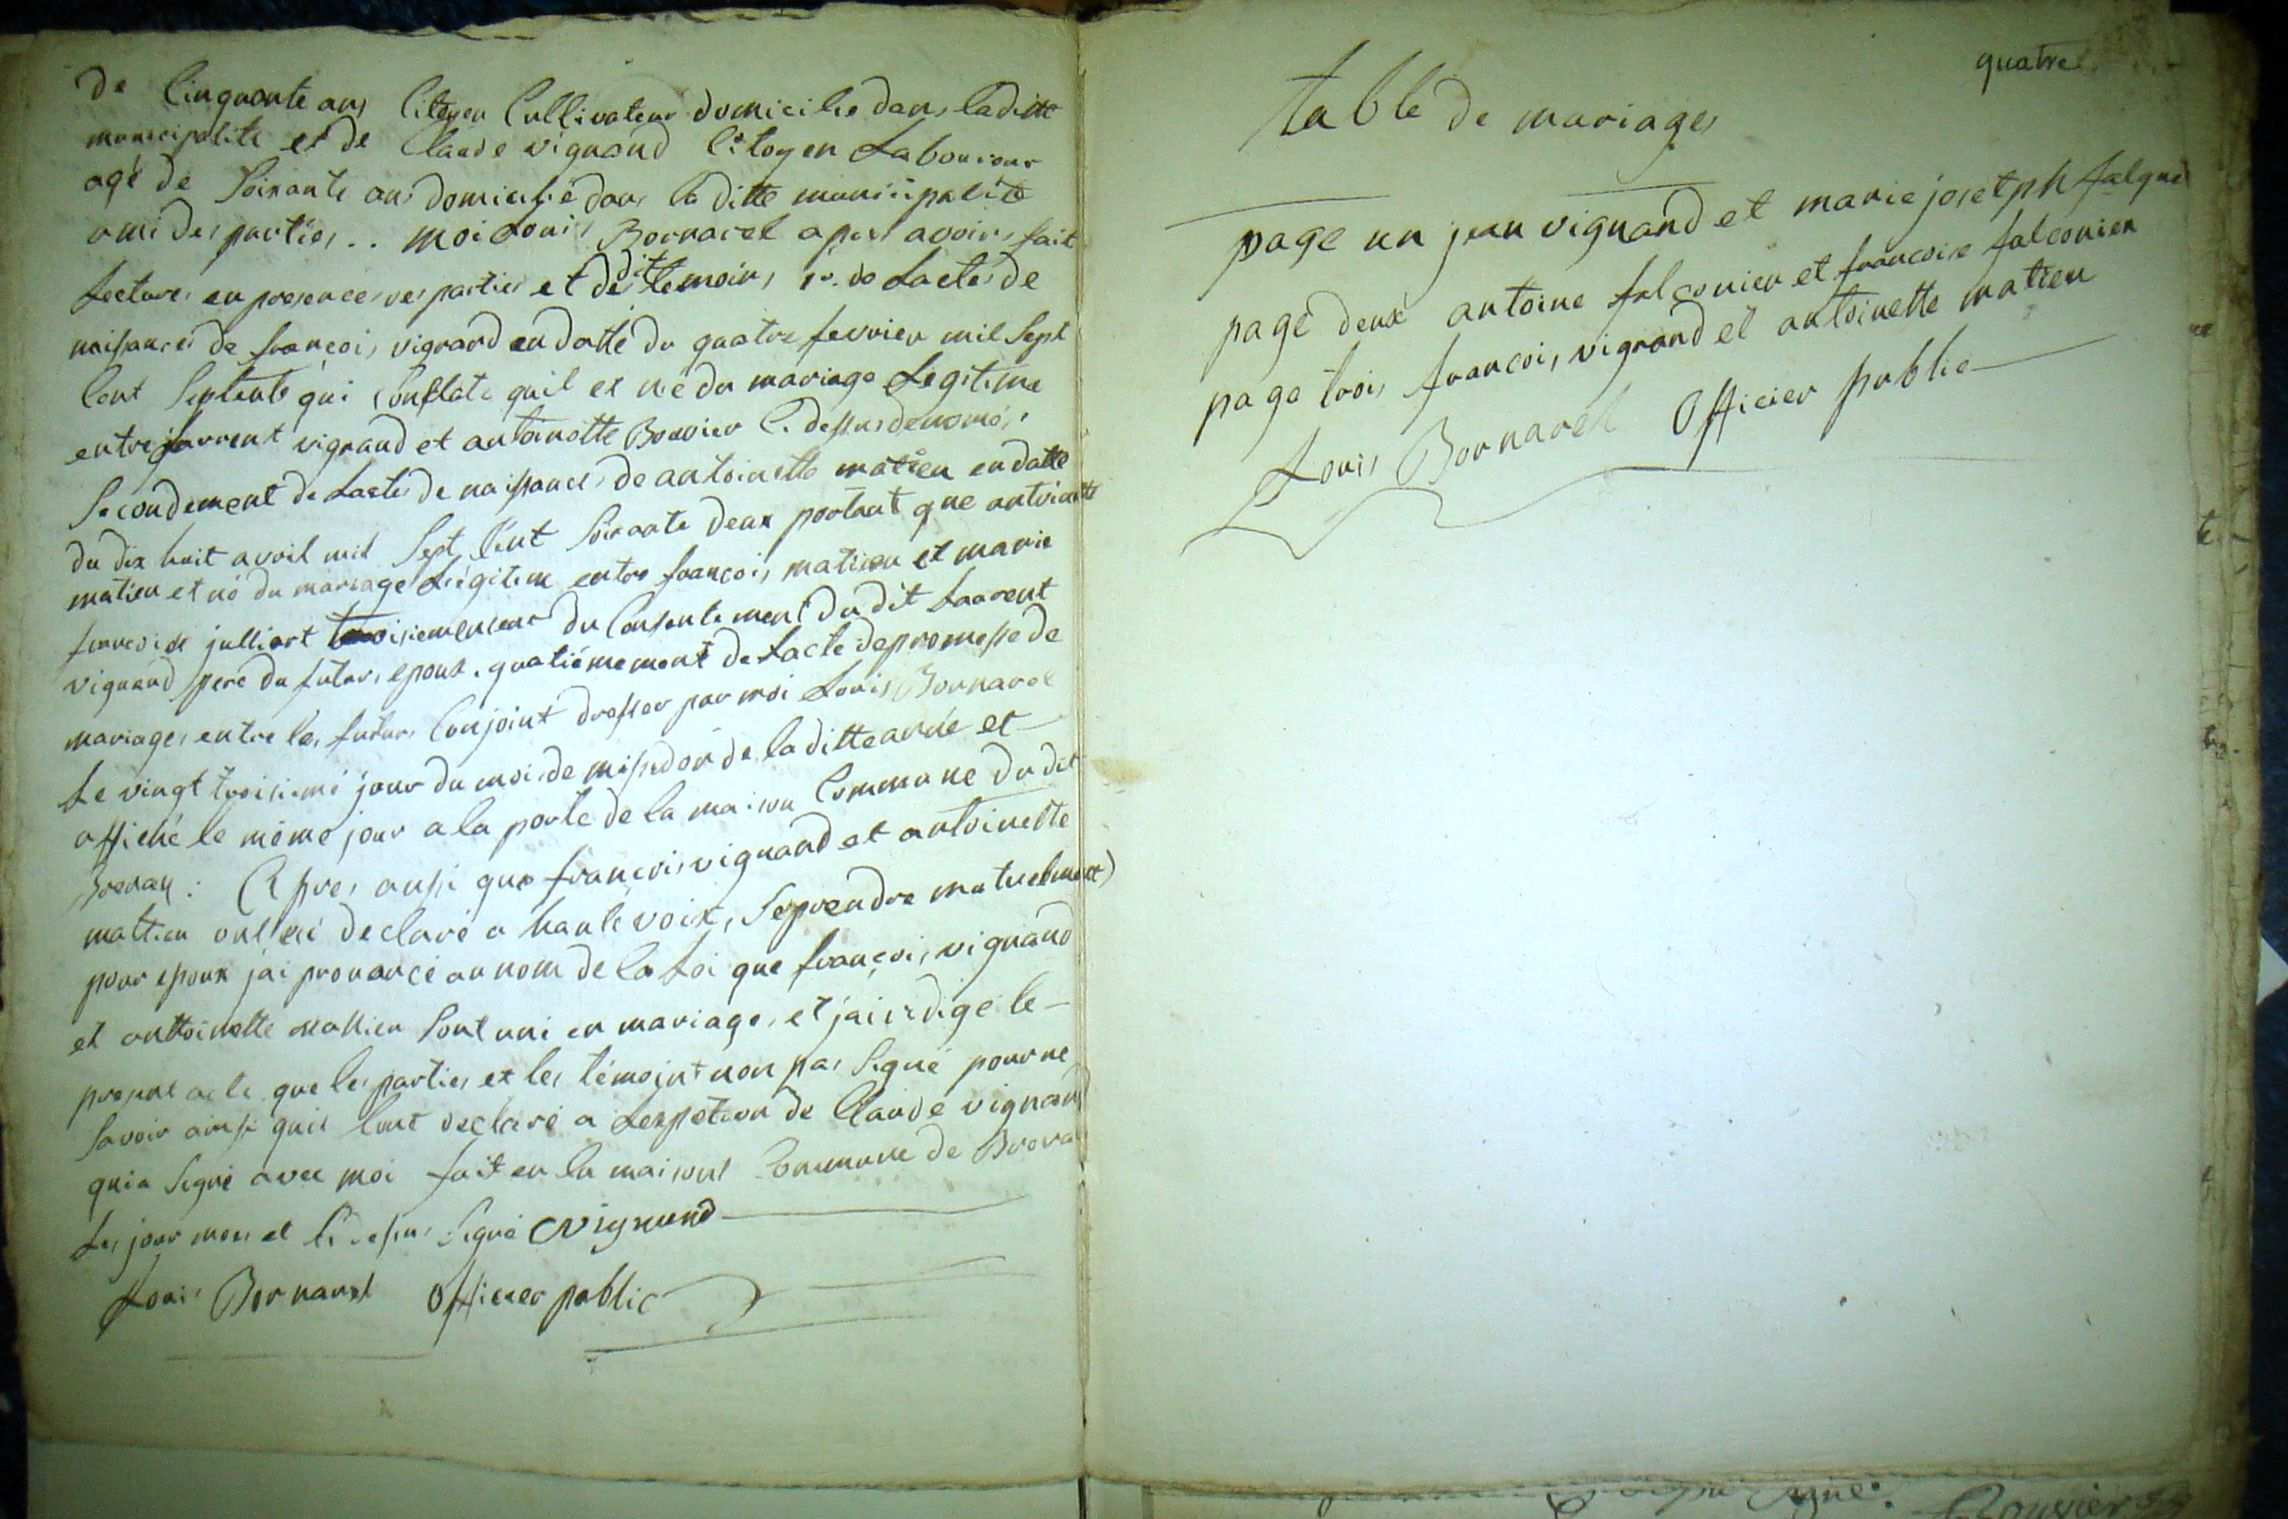 de Cinquante ans Citoyen Cultivateur domicilié dans laditte
municipalité et de Claude vignand Citoyen Laboureur
agé de Soixante ans domicilié dans laditte municipalité
ami des parties .. moi Louis Bornarel apres avoir fait
Lecture en presence des parties et des dit temoins 1o. de Lacte de
naissance de francois vignand en datte du quatre fevrier mil Sept
Cent Septente qui Constate quil et né du mariage Legitime
entre Laurent vignand et antoinette Bouvier Ci dessus denomé,
Secondement de Lacte de naissance de antoinette matieu en datte
du dix huit avril mil Sept Cent Soixante deux portant que antoinette
matieu et né du mariage Légitime entre francois matieu et marie
francoise julliart troisiemement du Consentement du dit Laurent
vignand pere du futur epoux. quatiémement de Lacte de promesse de
mariage entre les futurs Conjoint dresser par moi Louis Bornarel
Le vingt troisieme jour du mois de messidor de laditte année et
affiché le même jour a la porte de la maison Commune du dit
Brenaz : Apres aussi que francois vignand et antoinette
mattieu ont declaré a haute voix, Se prendre mutuelment
pour epoux jai prononcé au nom de la Loi que françois vignand
et anttoinette mattieu Sont uni en mariage, et jai redigé le
present acte que les parties et les témoint non pas Signé pour ne
Savoir ainsi quil lont declaré a Lexpetion de Claude vignand
qui a Signé avec moi fait en la maison Commune de
Les jour mois et Ci dessus Signé Cvignand
Louis Bornarel Officier public
quatre
table de mariages
page un jean vignand et marie josetph falque
page deux antoine falconier et francoise falconier
page trois francois vignand et antoinette matieu
Louis Bornarel Officier public
Signé
Bouvier